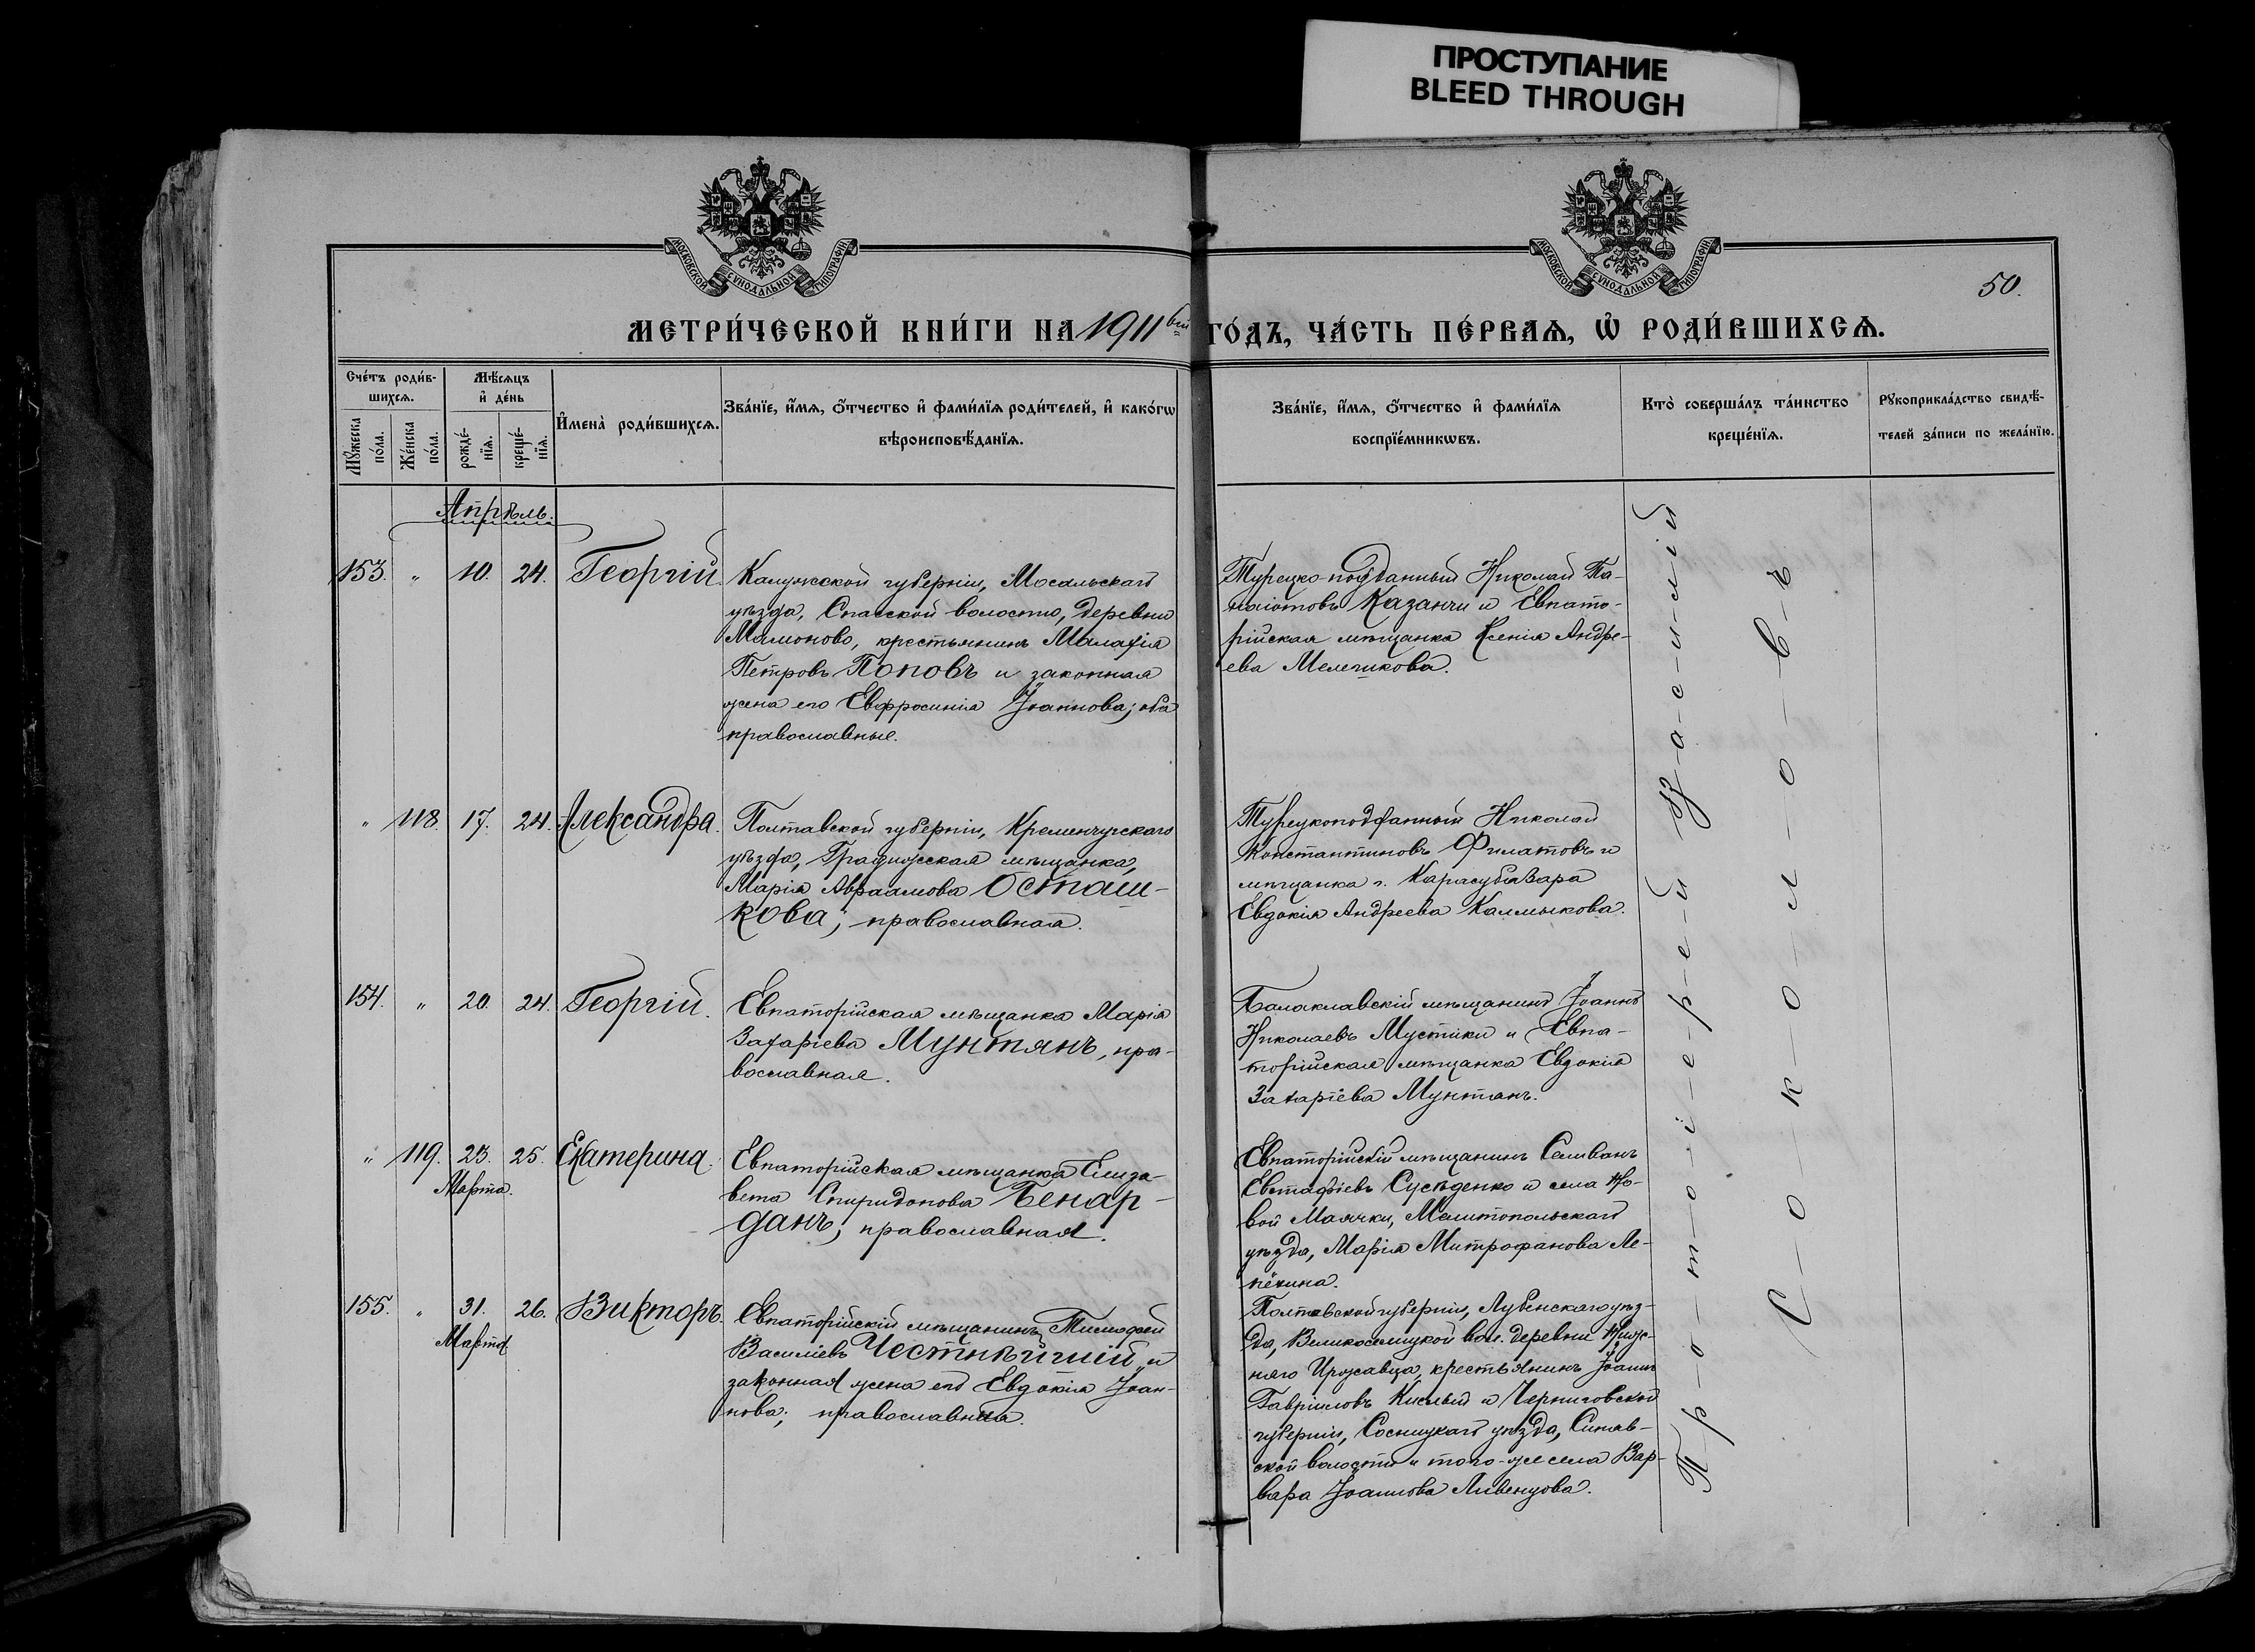 ПРОСТУПАНИЕ
BLEED THROUGH
МОСКОВСКОЙ СѴНОДАЛЬНОЙ ТИПОГРАФІИ
МОСКОВСКОЙ СѴНОДАЛЬНОЙ ТИПОГРАФІИ
50.
МЕТРИ́ЧЕСКОЙ КНИ́ГИ НА 1911 ГО́ДЪ, ЧА́СТЬ ПЕ́РВАѦ, Ѡ҆ РОДИ́ВШИХСѦ.
Сче́тъ роди́в-
шихсѧ.
Мꙋ́жеска по́ла.
Же́нска по́ла.
Мѣ́сѧцъ
и҆ де́нь
рожде́-
нїѧ.
креще́-
нїѧ.
И҆мена̀ роди́вшихсѧ.
Зва́нїе, и҆́мѧ, ѻ҆́тчество и҆ фами́лїѧ роди́телей, и҆ како́гѡ
вѣроисповѣ́данїѧ.
Зва́нїе, и҆́мѧ, ѻ҆́тчество и҆ фами́лїѧ
воспрїе́мникѡвъ.
Кто̀ соверша́лъ та́инство
креще́нїѧ.
Рꙋкоприкла́дство свидѣ́-
телей за́писи по жела́нїю.
Апрѣль.
153. " 10. 24. Георгій.
Калужской губерніи, Мосальскаго
уѣзда, Спасской волости, деревни
Мамоново, крестьянинъ Малахія
Петровъ Поповъ и законная
жена его Евфросинія Іоаннова; оба
православные.
Турецко-подданный Николай Па-
наіотовъ Казанчи и Евпато-
рійская мѣщанка Ксенія Андре-
ева Мелешкова.
" 118. 17. 24. Александра.
Полтавской губерніи, Кременчугскаго
уѣзда, Градижская мѣщанка,
Марія Авраамова Осташ-
кова; православная.
Турецкоподданный Николай
Константиновъ Филатовъ и
мѣщанка г. Карасубазара
Евдокія Андреева Калмыкова.
154. " 20. 24. Георгій.
Евпаторійская мѣщанка Марія
Захаріева Мунтянъ, пра-
вославная.
Балаклавскій мѣщанинъ Іоаннъ
Николаевъ Мустики и Евпа-
торійская мѣщанка Евдокія
Захаріева Мунтанъ.
" 119. 23. 25. Екатерина.
Марта.
Евпаторійская мѣщанка Елиза-
вета Спиридонова Бенар-
данъ; православная.
Евпаторійскій мѣщанинъ Селиванъ
Евстафіевъ Сусѣденко и села Но-
вой Маячки, Мелитопольскаго
уѣзда, Марія Митрофанова Ле-
пёхина.
155. " 31. 26. Викторъ.
Марта
Евпаторійскій мѣщанинъ Тимофей
Василіевъ Честнѣйшій и
законная жена его Евдокія Іоан-
нова; православныя.
Полтавской губерніи, Лубенскаго уѣз-
да, Великоселицкой вол. деревни Ниж-
няго Иржавца, крестьянинъ Іоаннъ
Гавриловъ Кислый и Черниговской
губерніи, Сосницкаго уѣзда, Синяв-
ской волости и того-же села Вар-
вара Іоаннова Ливенцова.
П-р-о-т-о-і-е-р-е-й В-а-с-и-л-і-й
С-о-к-о-л-о-в-ъ